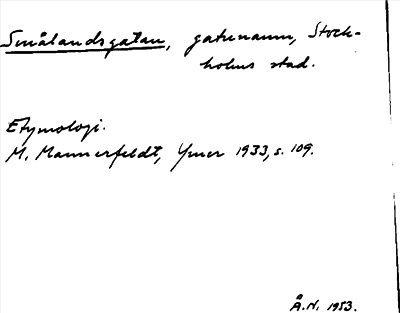 Smålandsgatan, gatunamn, Stock-
holms stad.
Etymologi.
M. Mannerfeldt, Ymer 1933, s. 109.
Å.N. 1953.